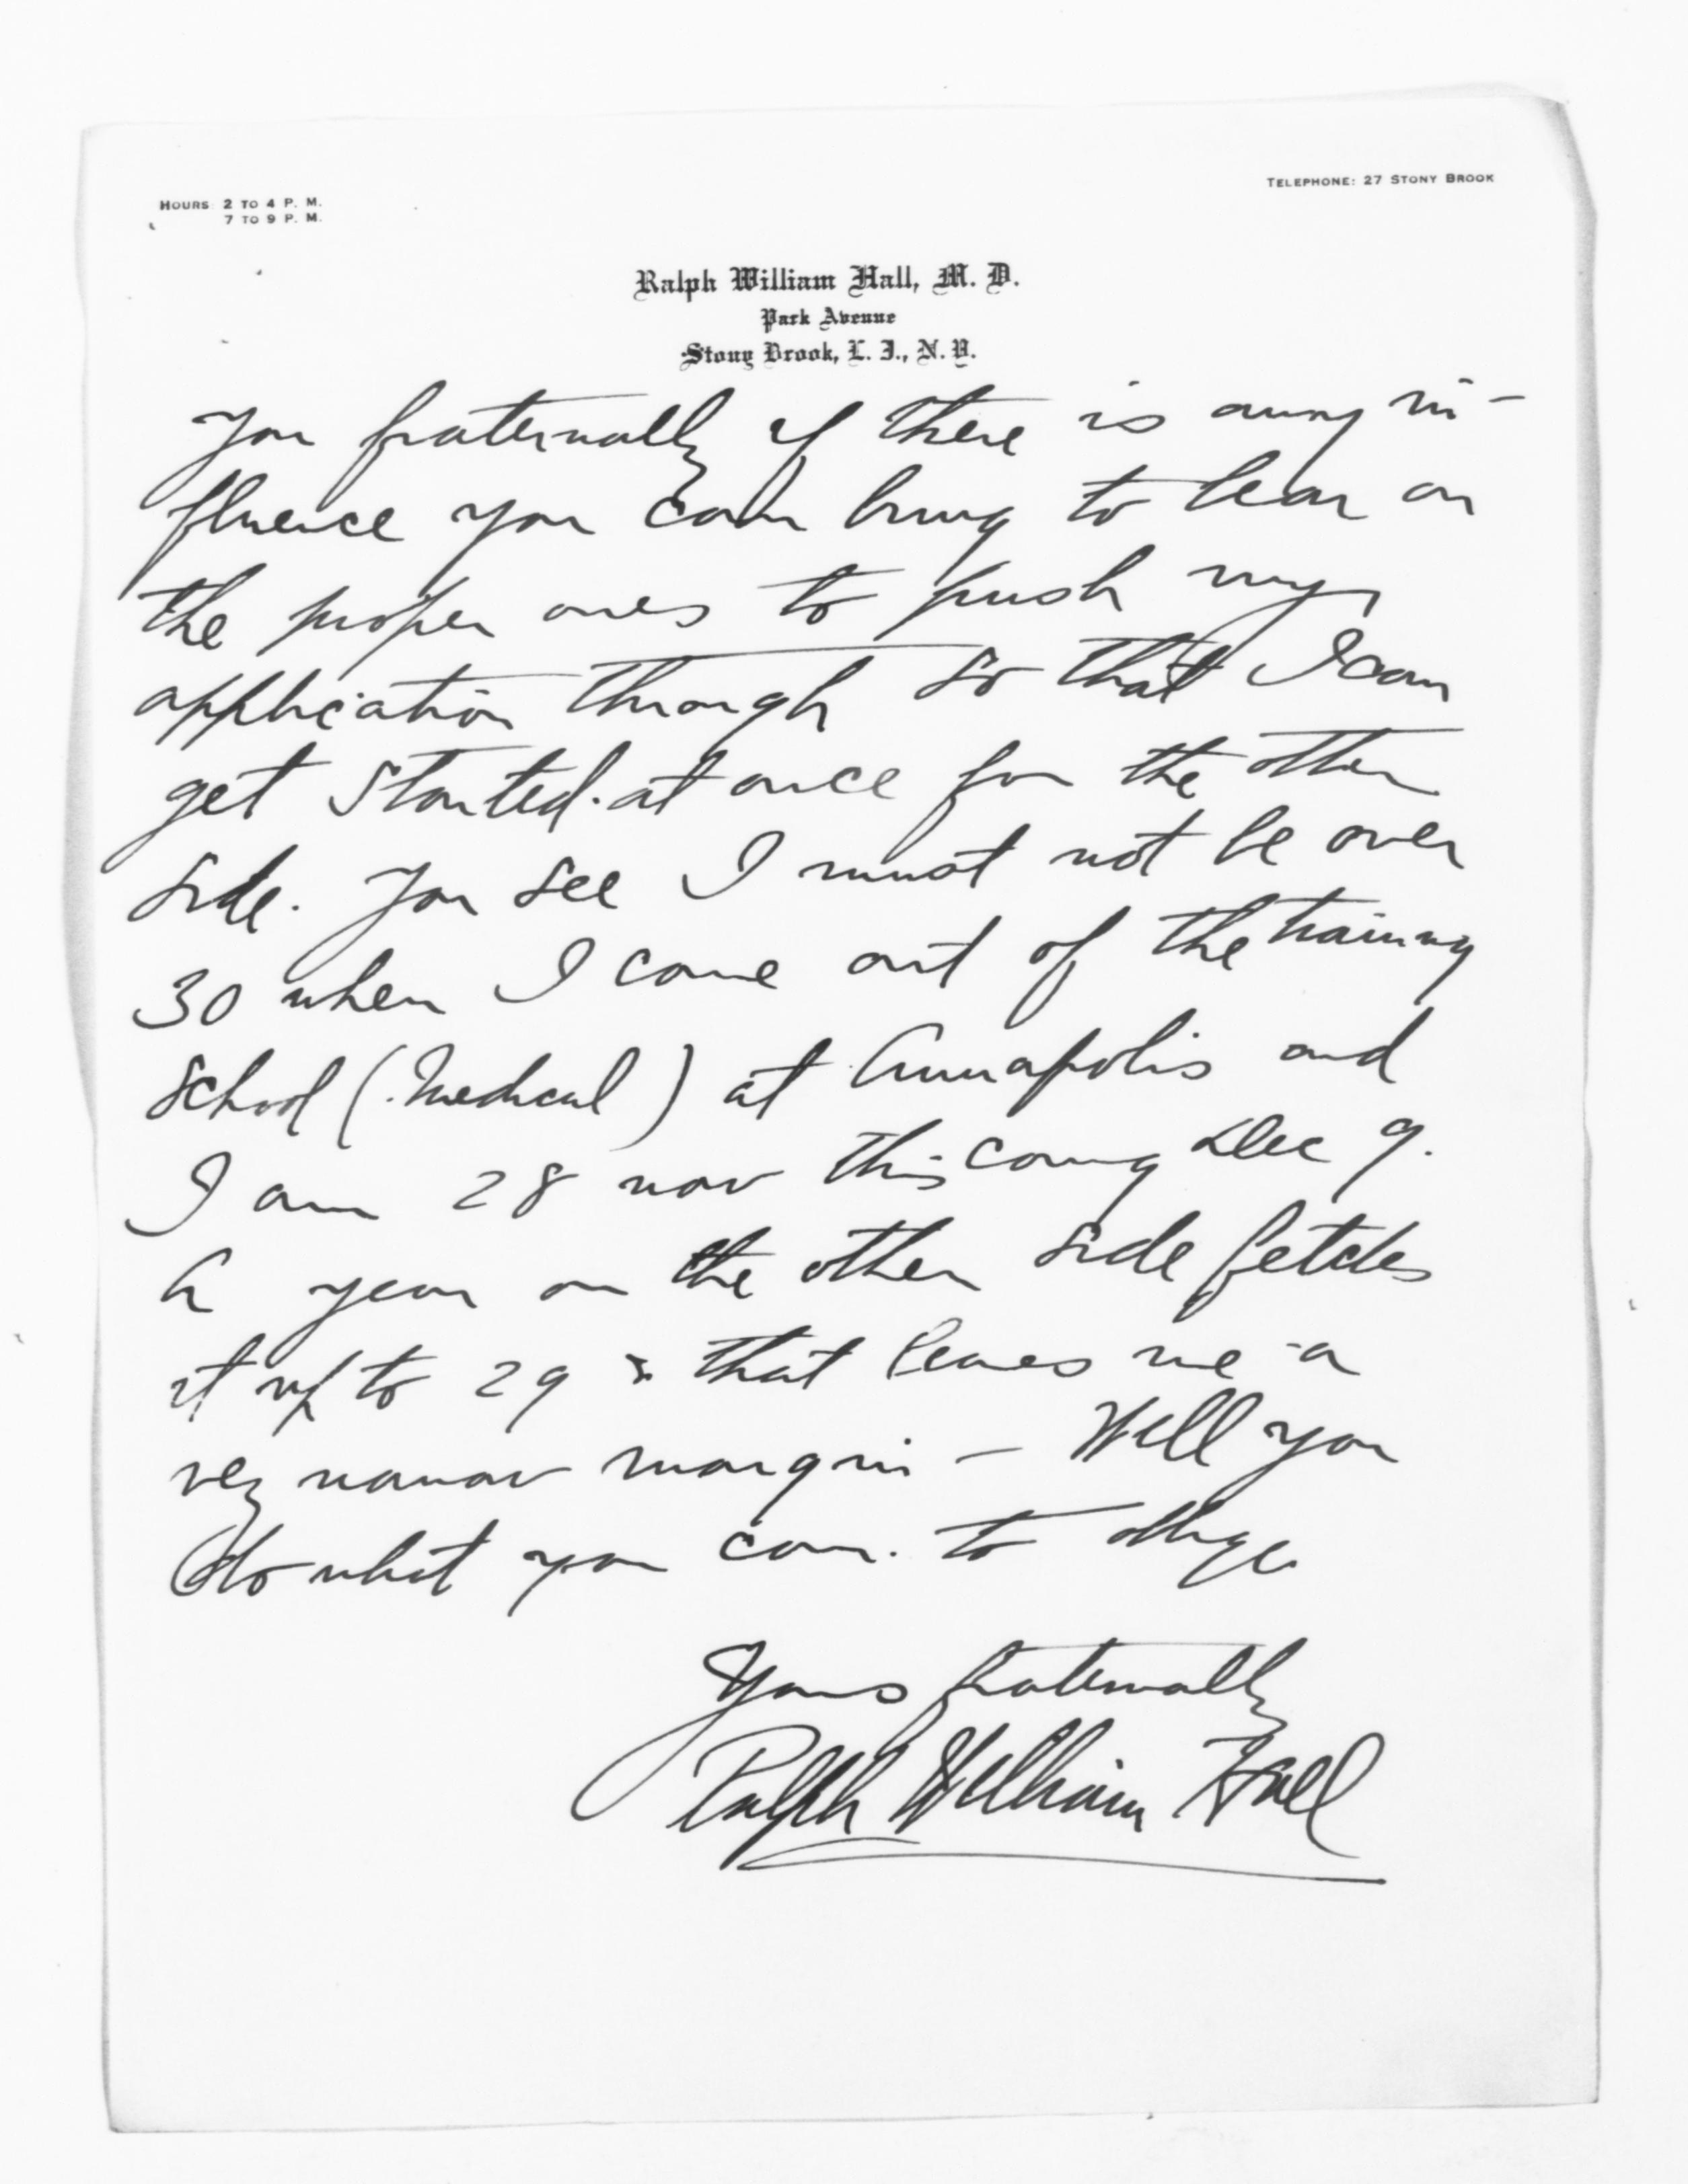 HOURS 2 TO 4 P. M.
7 TO 9 P. M.
TELEPHONE: 27 STONY BROOK
Ralph William Hall, M. D.
Park Avenue
Stony Brook, L. I., N. Y.
you fraternally if there is any in-
fluence you can bring to bear on
the proper ones to push my
application through so that I can
get started at once for the other
side. You see I must not be over
30 when I come out of the training
school (Medical) at Annapolis and
I am 28 now this coming Dec 9.
A year on the other side fetches
it up to 29 & that leaves me a
very narrow margin — Will you
do what you can. to oblige
Yours fraternally
Ralph William Hall